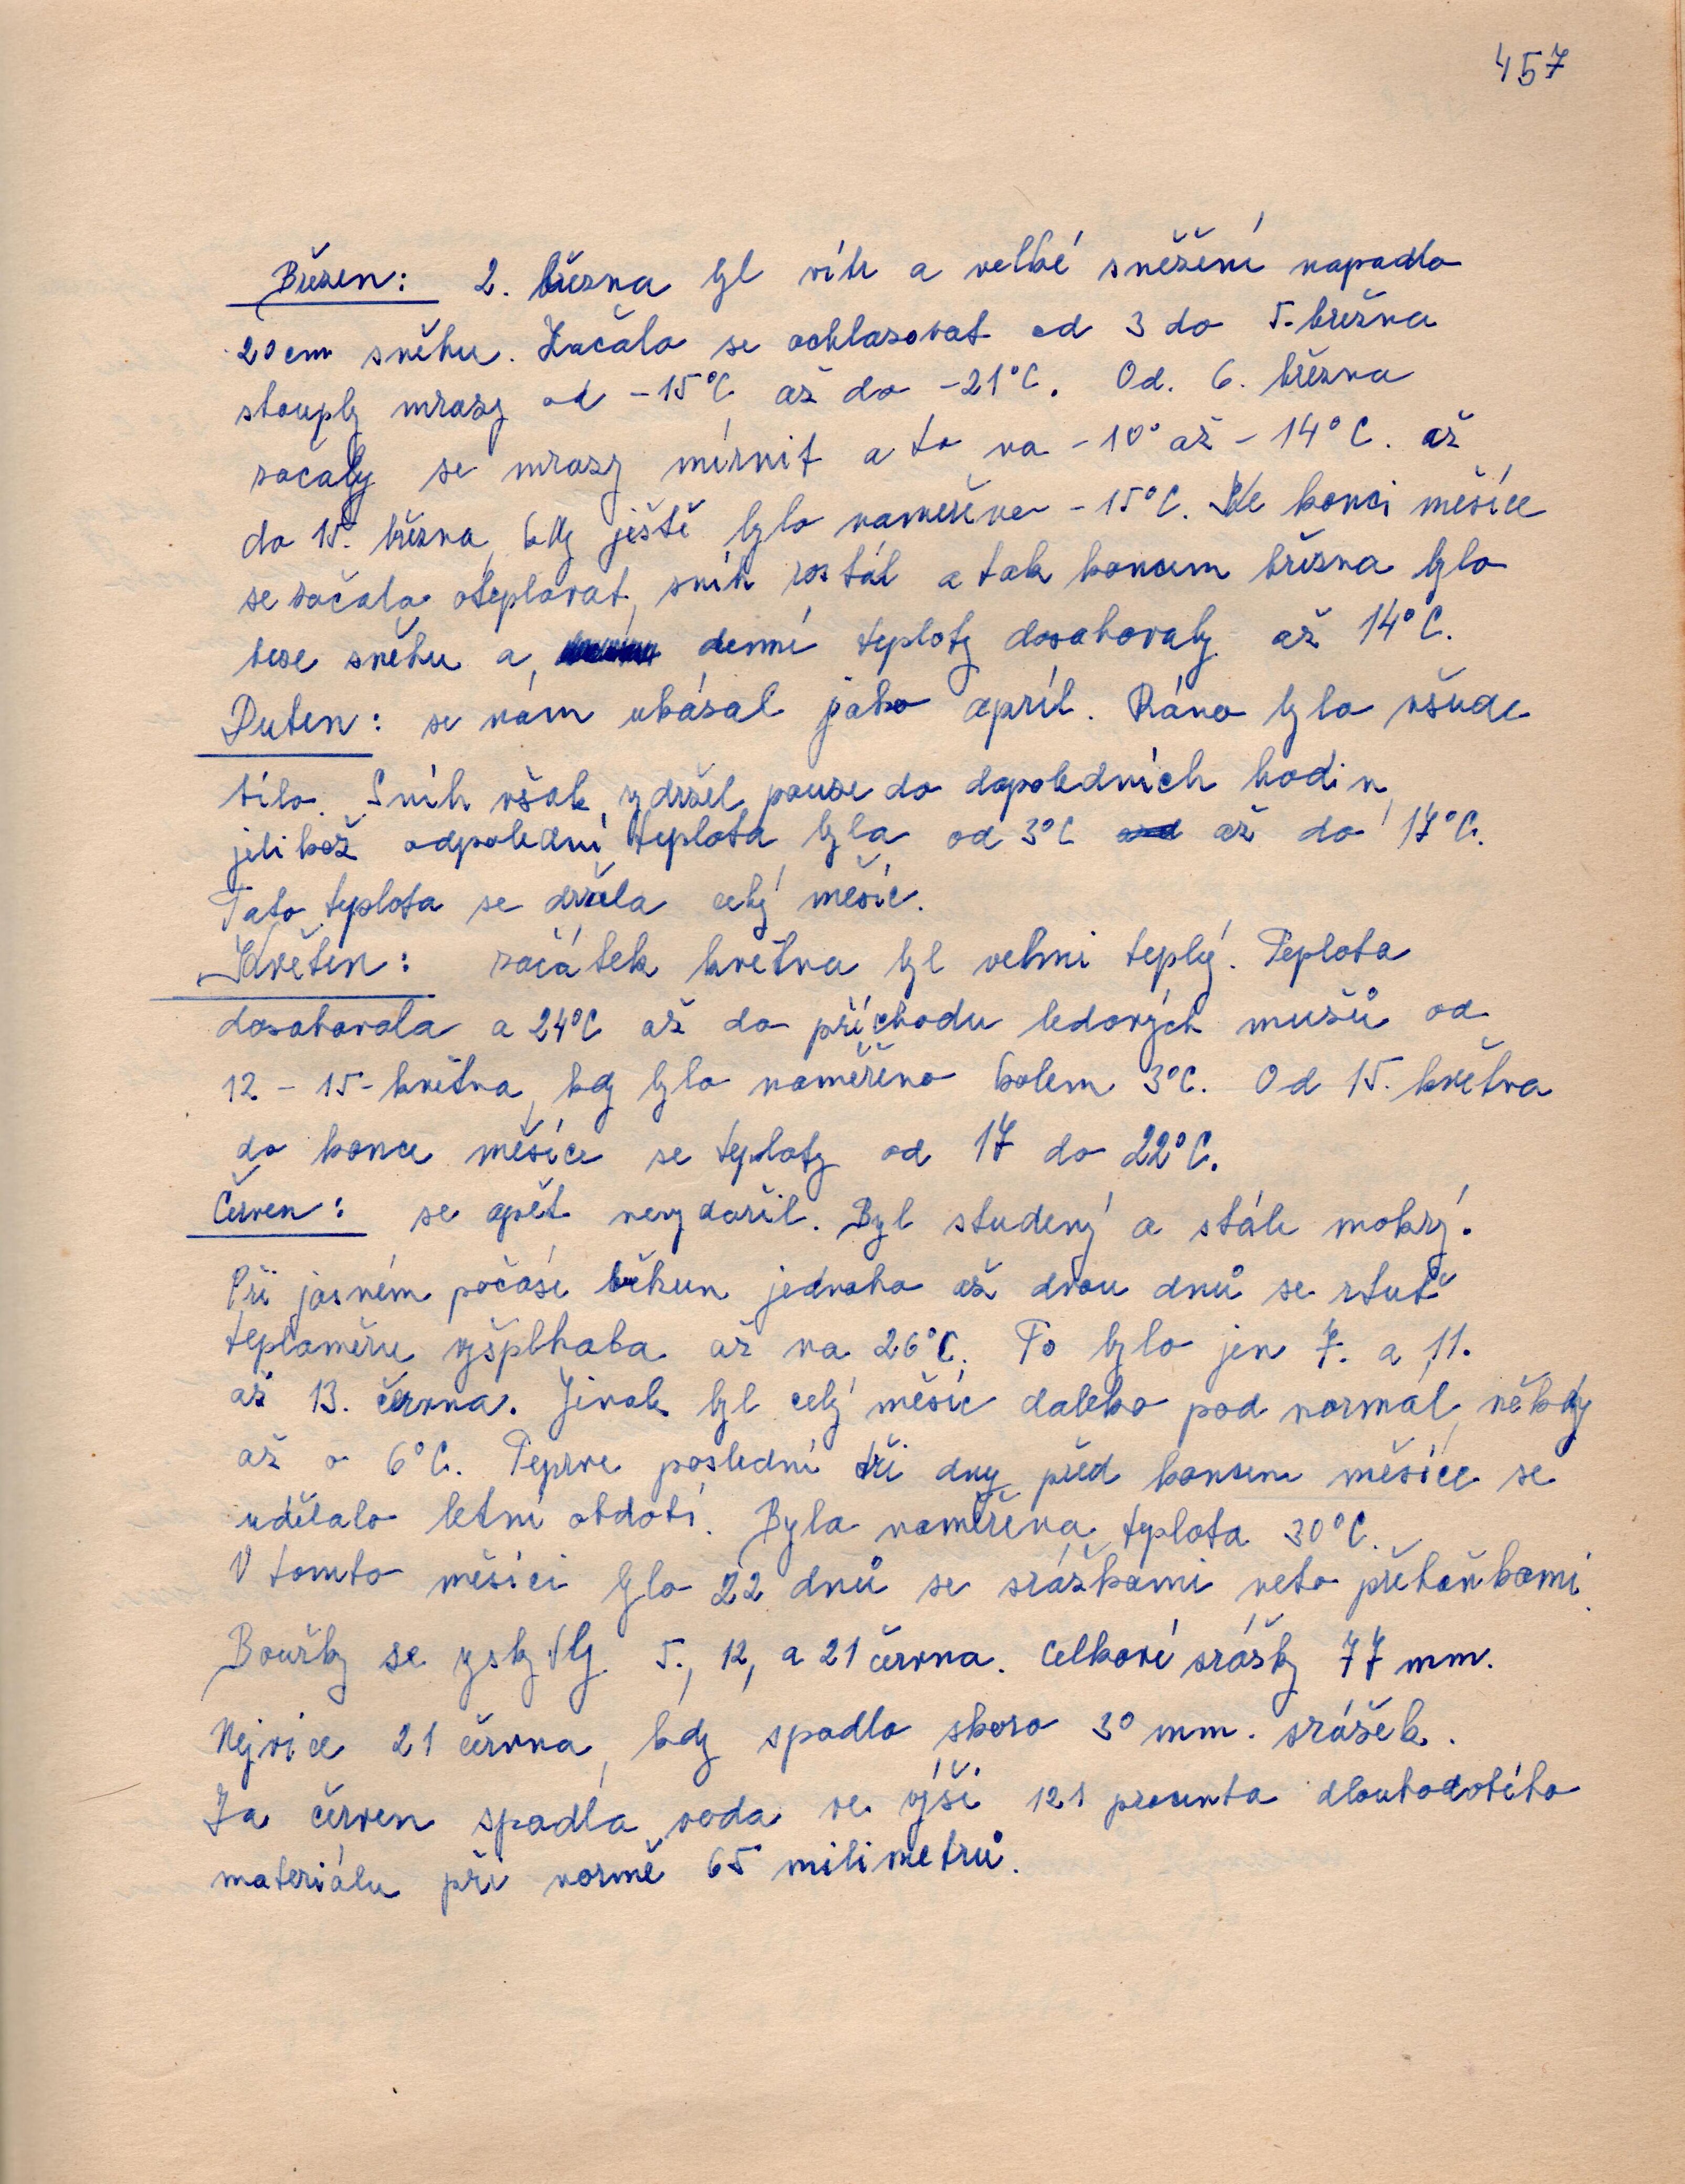 457
Březen: 2. března byl vítr a velké sněžení napadlo
20 cm sněhu. Začalo se ochlazovat od 3 do 5. března
stouply mrazy od -15°C až do -21°C. Od. 6. března
začaly se mrazy mírnit a to na -10° až -14°C. až
do 15. března, kdy ještě bylo naměřeno -15°C. Ke konci měsíce
se začalo oteplovat, sníh roztál a tak koncem března bylo
beze sněhu a denní teploty dosahovaly až 14°C.
Duben: se nám ukázal jako apríl. Ráno bylo všude
bílo. Sníh však vydržel pouze do dopoledních hodin,
jelikož odpolední teplota byla od 3°C až do 17°C.
Tato teplota se držela celý měsíc.
Květen: začátek května byl velmi teplý. Teplota
dosahovala a 24°C až do příchodu ledových mužů od
12 - 15 - května, kdy bylo naměřeno kolem 3°C. Od 15. května
do konce měsíce se teploty od 17 do 22°C.
Červen: se opět nevydařil. Byl studený a stále mokrý.
Při jasném počasí během jednoho až dvou dnů se rtuť
teploměru vyšplhala až na 26°C. To bylo jen 7. a 11.
až 13. června. Jinak byl celý měsíc daleko pod normál, někdy
až o 6°C. Teprve poslední tři dny před koncem měsíce se
udělalo letní období. Byla naměřena teplota 30°C.
V tomto měsíci bylo 22 dnů se srážkami nebo přeháňkami.
Bouřky se vyskytly 5., 12, a 21 června. Celkové srážky 77 mm.
Nejvíce 21 června, kdy spadlo skoro 30 mm. srážek.
Za červen spadla voda ve výši 121 procenta dlouhodobého
materiálu při normě 65 milimetrů.